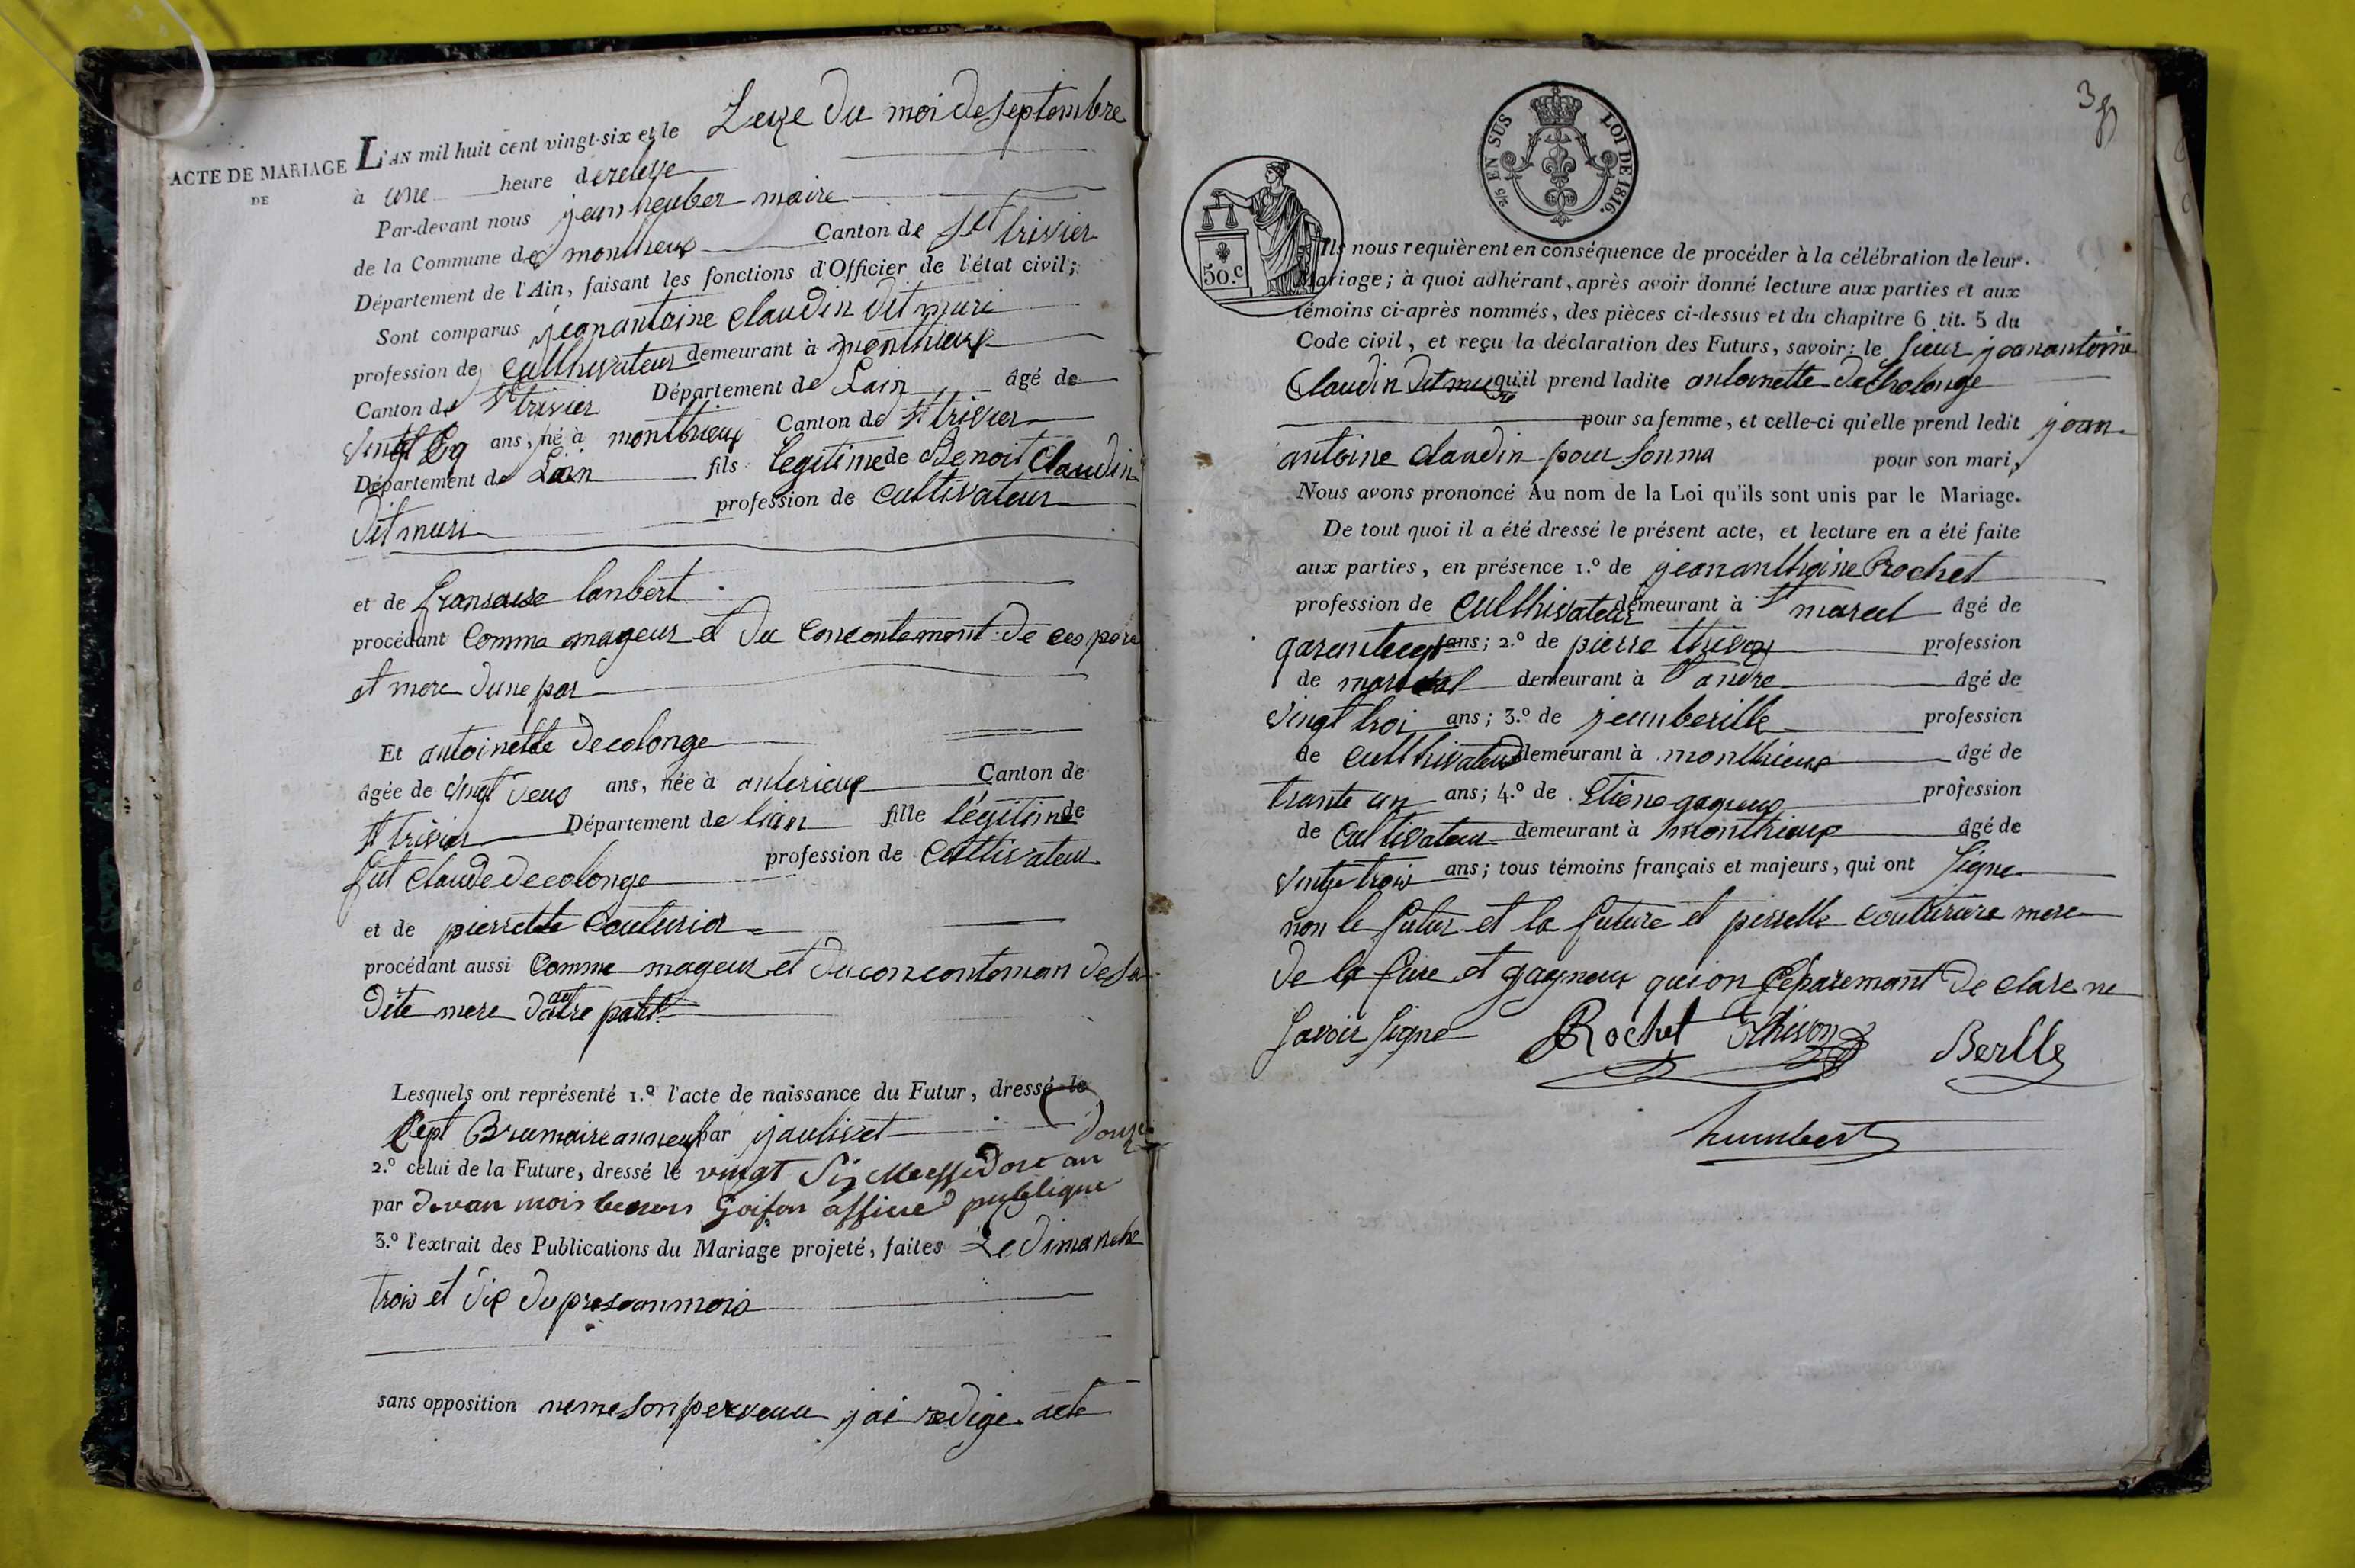 ACTE DE MARIAGE
DE
L'AN mil huit cent vingt-six et le Zeize du moi de septembre
à une heure de relevé
Par-devant nous jean heuber maire
de la Commune de monthieux Canton de St trivier
Département de l'Ain, faisant les fonctions d'Officier de l'état civil;
Sont comparus jeanantoine Claudin dit muri
profession de culthivateur demeurant à monthieux
Canton de St trivier Département de Lain âgé de
vingt ans, né à monthieux Canton de St trivier
Département de Lain fils legitime de Benoit Claudin
dit muri profession de cultivateur
et de fransoise lanbert
procédant comme mageur et du concontemant de ces pere
et mere dune par
Et antoinette decolonge
âgée de vingt deus ans, née à anterieux Canton de
St trivier Département de liain fille légitime de
fut Claude decolonge profession de cultivateur
et de pierrette Couturier
procédant aussi comme mageur et du concontoman de sa
dite mere dautre part
Lesquels ont représenté 1.º l'acte de naissance du Futur, dressé le
sept Brumaire an neuf par jaulivet
douze
2.º celui de la Future, dressé le vingt six Messidore an
par devan mois benoit Goifon afficié publique
3.º l'extrait des Publications du Mariage projeté, faites Le dimanche
trois et dix du presoan mois
sans opposition neme son pervenu jai redige acte
38
2/5 EN SUS LOI DE 1816.
50.c
Ils nous requièrent en conséquence de procéder à la célébration de leur
Mariage; à quoi adhérant, après avoir donné lecture aux parties et aux
témoins ci-après nommés, des pièces ci-dessus et du chapitre 6 tit. 5 du
Code civil, et reçu la déclaration des Futurs, savoir: le sieur jeanantoine
Claudin dit muri qu'il prend ladite antoinette decholonge
pour sa femme, et celle-ci qu'elle prend ledit jean
antoine Claudin pour son ma pour son mari,
Nous avons prononcé Au nom de la Loi qu'ils sont unis par le Mariage.
De tout quoi il a été dressé le présent acte, et lecture en a été faite
aux parties, en présence 1.º de jeananthoine Rochet
profession de culthivateur demeurant à St marcel âgé de
garentecept ans; 2.º de pierre thivon profession
de marechal demeurant à St andre âgé de
vingt troi ans; 3.º de jean berille profession
de culthivateur demeurant à monthieux âgé de
trante un ans; 4.º de Etiene gagneux profession
de cultivateur demeurant à monthieux âgé de
vintg trois ans; tous témoins français et majeurs, qui ont signe
non le futur et la future et pierrette couturiere mere
de la fure et gagneux qui on separemant declare ne
savoir signe Rochet Thivon Berlle
humbert